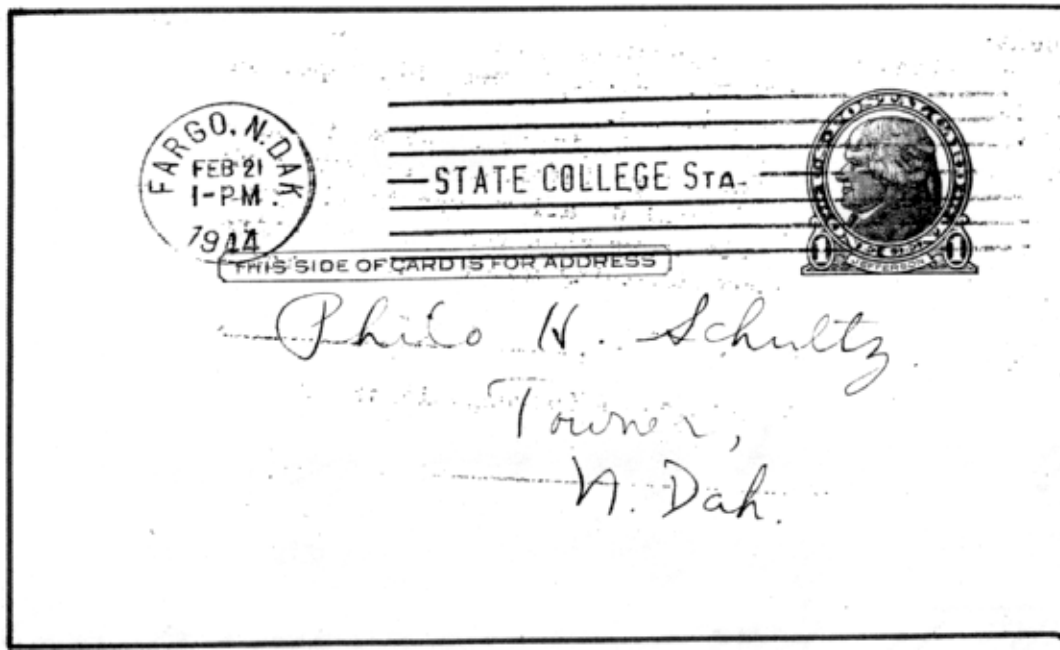 FARGO, N. DAK.
FEB 21
1-PM
1944
STATE COLLEGE STA.
1 JEFFERSON 1
THIS SIDE OF CARD IS FOR ADDRESS
Philo H. Schultz
Towner,
N. Dak.